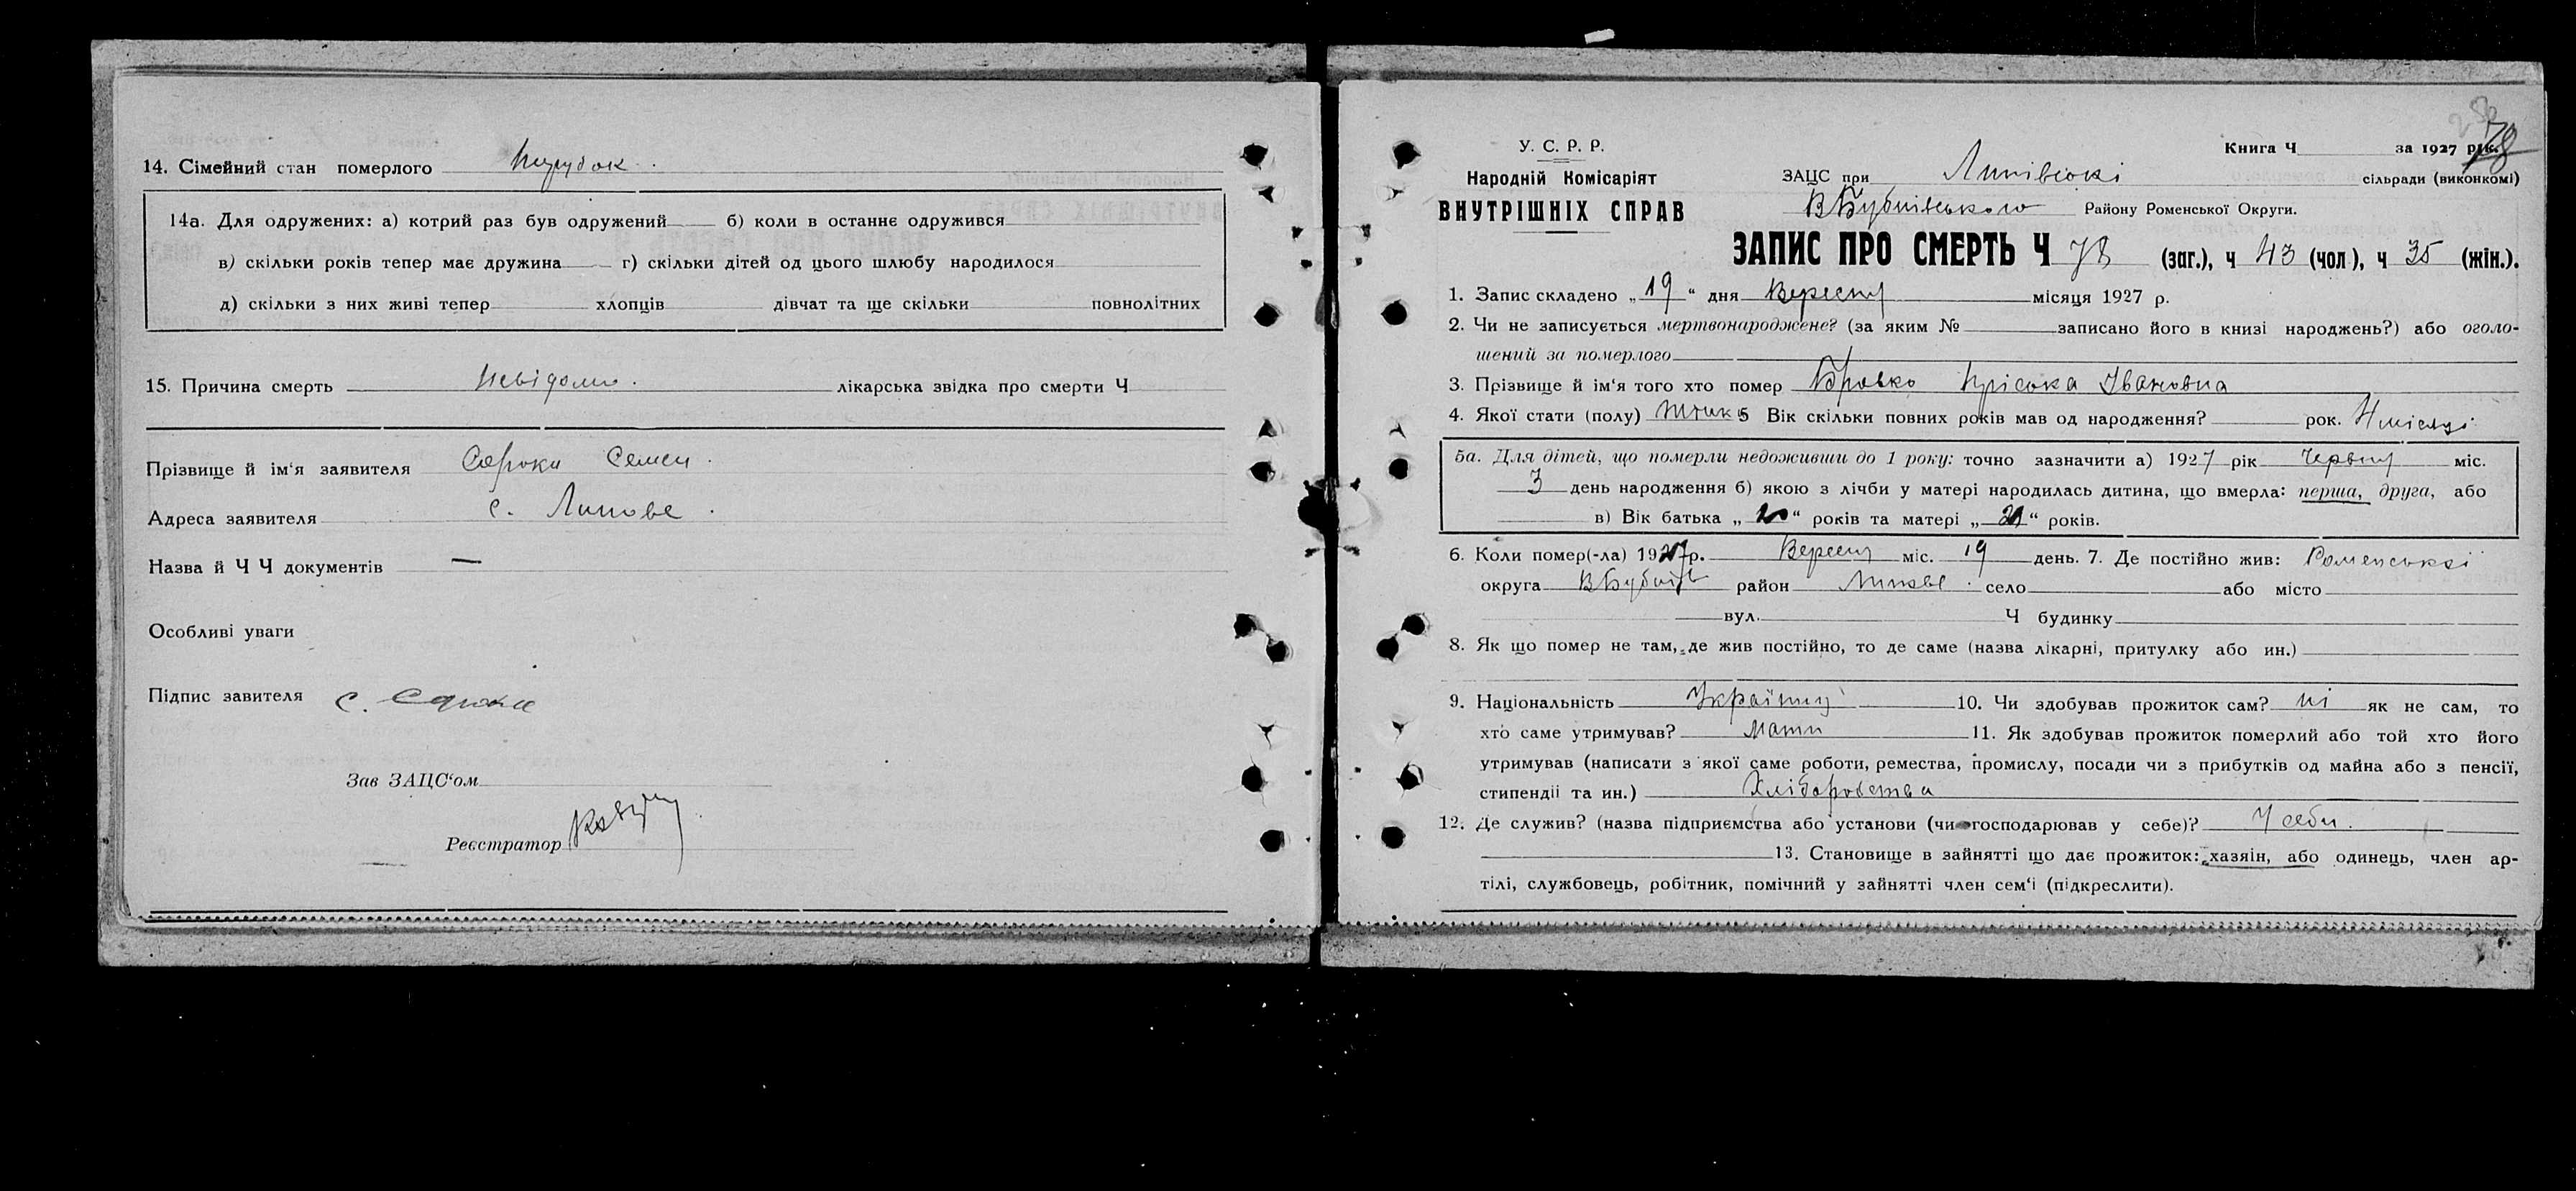 14. Сімейний стан померлого парубок.
14а. Для одружених: а) котрий раз був одружений б) коли в останнє одружився
в) скільки років тепер має дружина г) скільки дітей од цього шлюбу народилося
д) скільки з них живі тепер хлопців дівчат та ще скільки повнолітних
15. Причина смерть Невідомо. лікарська звідка про смерти Ч
Прізвище й ім‘я заявителя Сорока Семен.
Адреса заявителя с. Липове.
Назва й Ч Ч документів —
Особливі уваги
Підпис завителя С. Сорока
Зав ЗАЦС‘ом
Реєстратор
78
У. С. Р. Р.
Народній Комісаріят
ВНУТРІШНІХ СПРАВ
Книга Ч за 1927 рік.
ЗАЦС при Липівські сільради (виконкомі)
ВБубнівського Району Роменської Округи.
ЗАПИС ПРО СМЕРТЬ Ч 78 (заг.), ч 43 (чол), ч 35 (жін.).
1. Запис складено „19“ дня Вересня місяця 1927 р.
2. Чи не записується мертвонароджене? (за яким № записано його в книзі народжень?) або оголо-
шений за померлого
3. Прізвище й ім‘я того хто помер Бровко Пріська Івановна
4. Якої стати (полу) Жінка 5 Вік скільки повних років мав од народження? рок. 4 місяці
5а. Для дітей, що померли недоживши до 1 року: точно зазначити а) 1927 рік Червня міс.
3 день народження б) якою з лічби у матері народилась дитина, що вмерла: перша, друга, або
в) Вік батька „20“ років та матері „ “ років.
6. Коли помер(-ла) 1927р. Вересня міс. 19 день. 7. Де постійно жив: Роменської
округа ВБубнів район Липове. село або місто
вул. Ч будинку
8. Як що помер не там, де жив постійно, то де саме (назва лікарні, притулку або ин.)
9. Національність Україниця 10. Чи здобував прожиток сам? ні як не сам, то
хто саме утримував? Мати 11. Як здобував прожиток померлий або той хто його
утримував (написати з якої саме роботи, ремества, промислу, посади чи з прибутків од майна або з пенсії,
стипендіі та ин.) Хліборобства
12. Де служив? (назва підприємства або установи (чи господарював у себе)? У себе.
13. Становище в зайнятті що дає прожиток: хазяін, або одинець, член ар-
тілі, службовець, робітник, помічний у зайнятті член сем‘і (підкреслити).